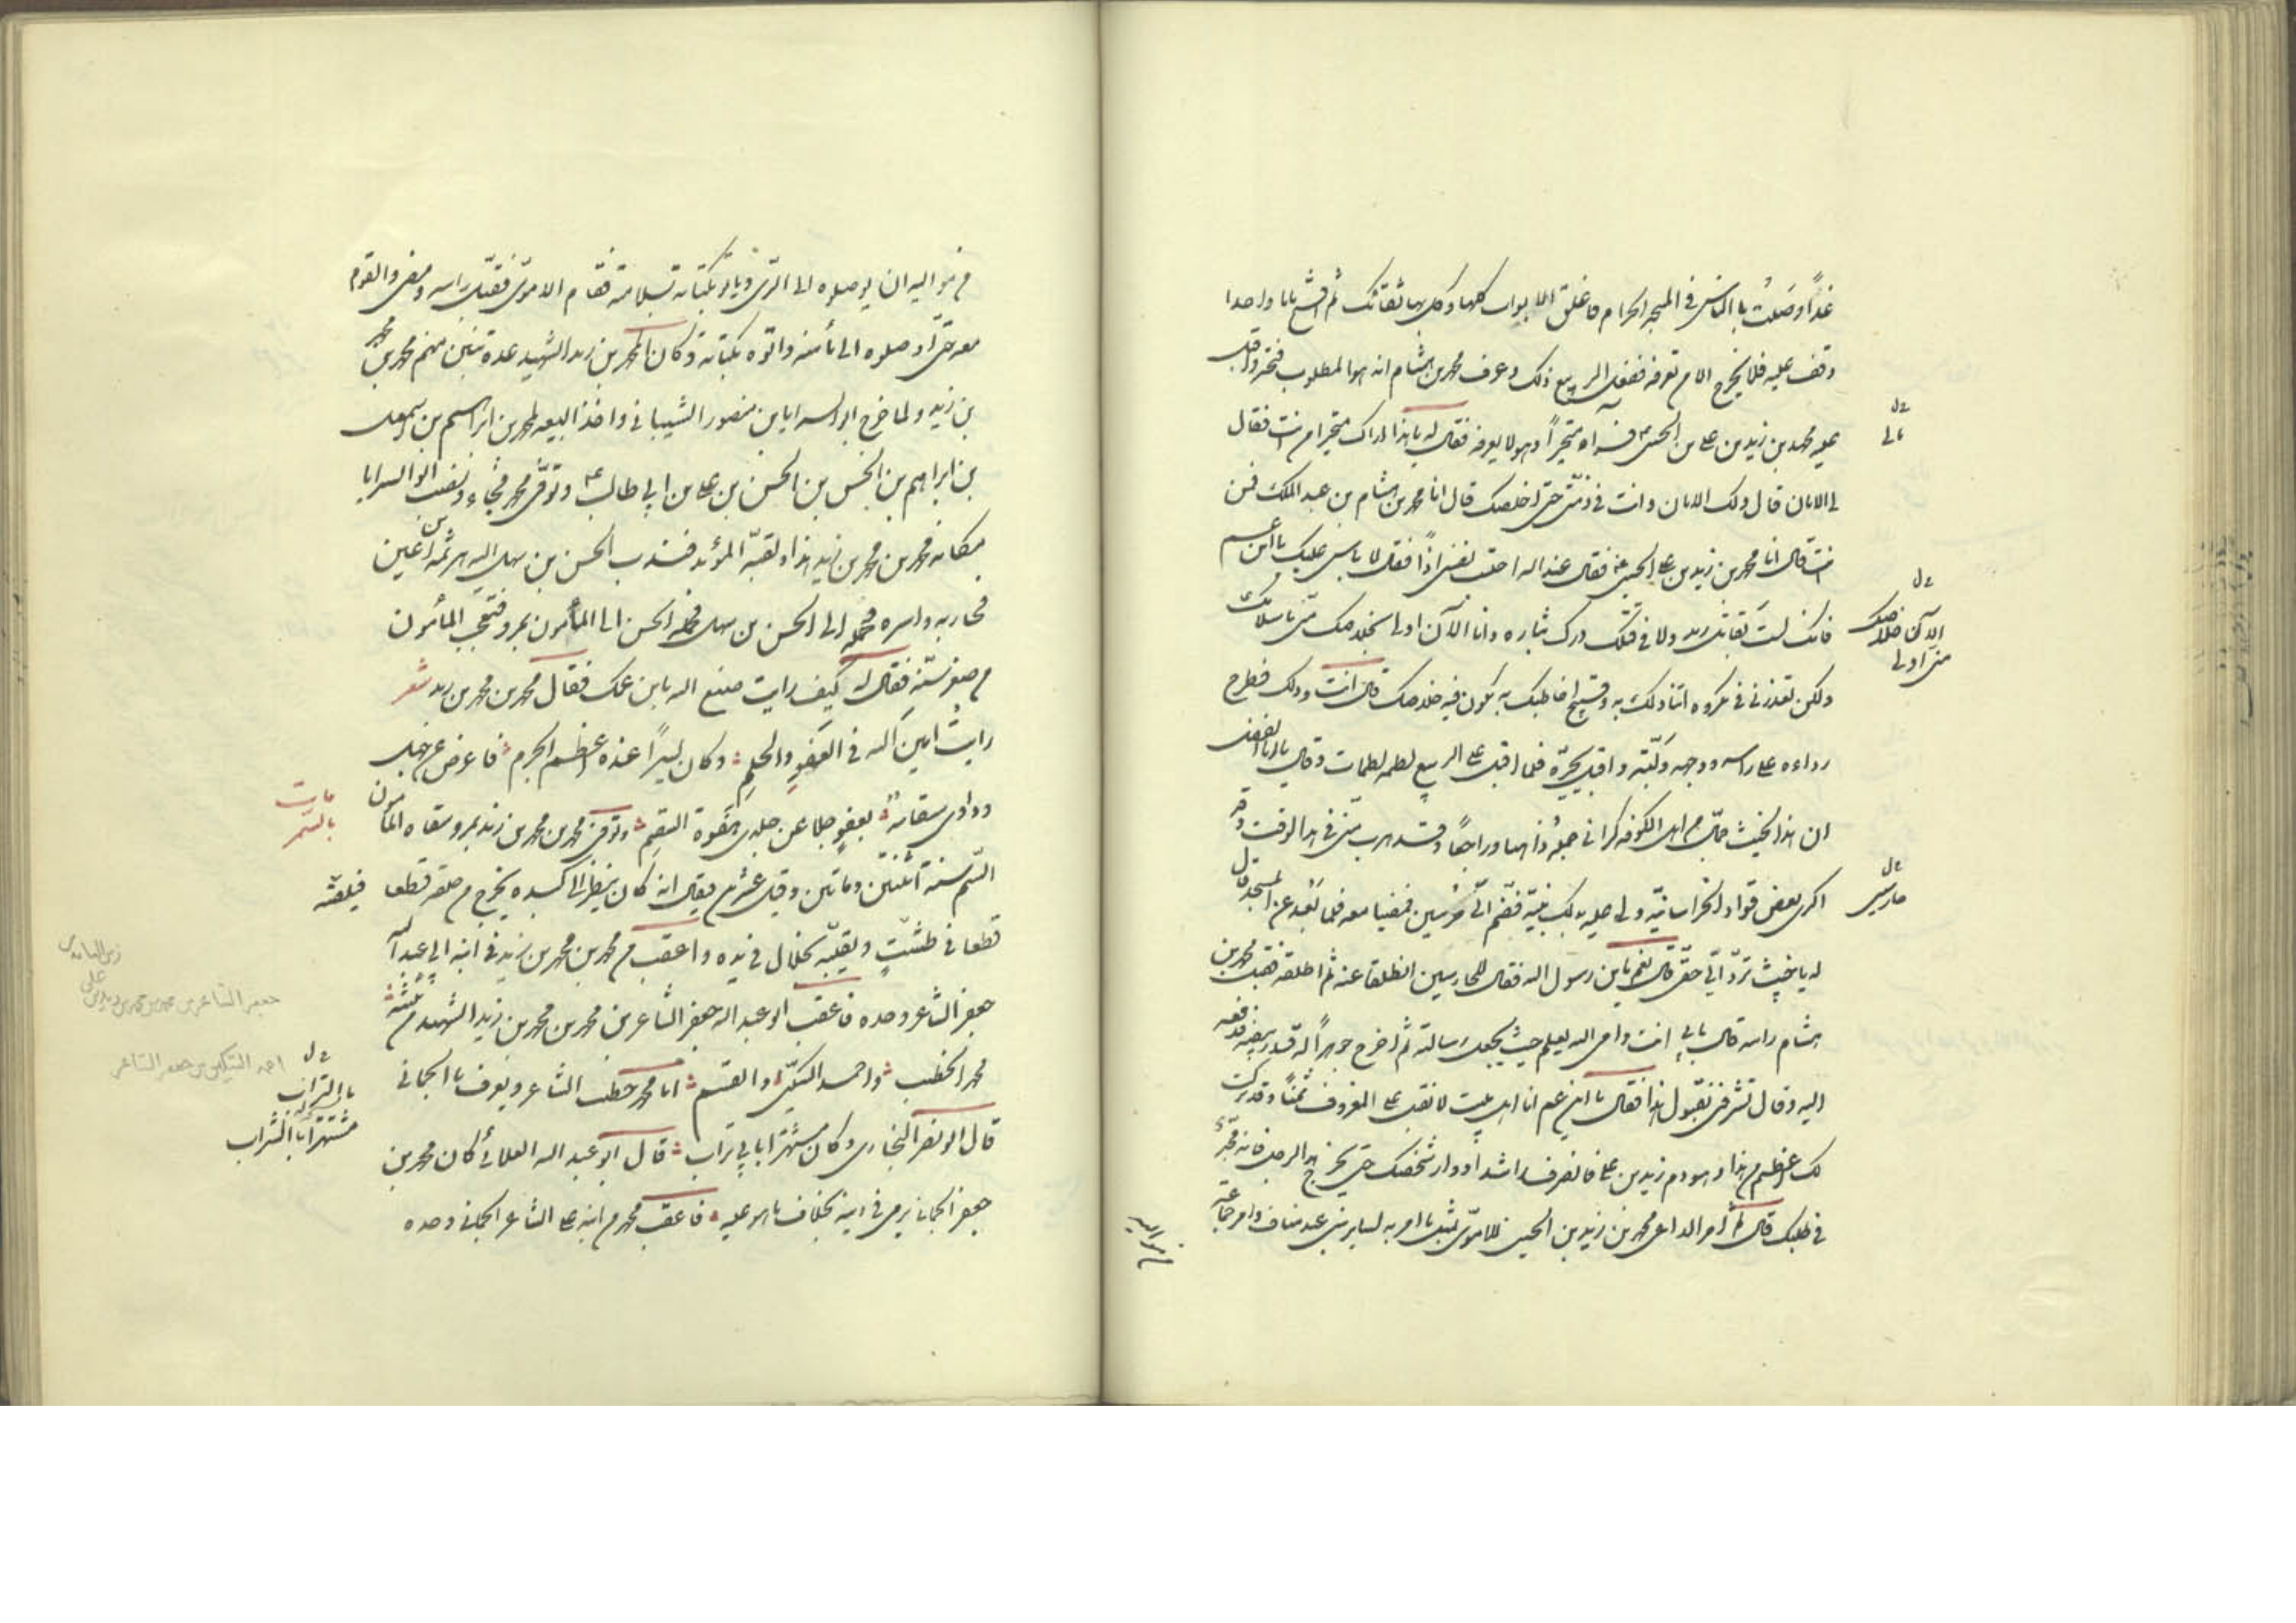 غداً وصليت بالناس في المسجد الحرام فاغلق الابواب كلها وكل بها ثقاتك ثم افتح بابا واحدا
وقف عليه فلا يخرج الا من تعرفه ففعل الربيع ذلك وعرف محمد بن هشام انه هو المطلوب فتحير واقبل
عليه محمد بن زيد بن على بن الحسين فراه متحيراً وهو لا يعرفه فقال له يا هذا اراك متحيرا من انت فقال
لى الامان قال ولك الامان وانت في ذمتى حتى اخلصك قال انا محمد بن هشام بن عبد الملك فمن
انت قال انا محمد بن زيد بن على بن الحسين فقال عند الله احتسب نفسى اذاً فقال لا باس عليك يا ابن عم
فانك لست بقاتل زيد ولا في قتلك درك بثاره وانا الآن اولى بخلاصك منى باسلامك
ولكن تعذرنى في مكروه اتناولك به وقبيح اخاطبك به يكون فيه خلاصك قال انت وذلك فطرح
رداءه على راسه ووجهه ولببه واقبل يجره فلما اقبل على الربيع لطمه لطمات وقال يا ابا الفضل
ان هذا الخبيث جمال من اهل الكوفة اكرانى جماله ذاهبا وراجعاً وقد هرب منى في هذا الوقت و
اكرى بعض قواد الخراسانية ولى عليه بذلك بينة فضم الى حرسيين فمضيا معه فلما بعد عن المسجد قال
له يا خبيث تردّ الىّ حقى قال نعم يا بن رسول الله فقال للحارسين انطلقا عنه ثم اطلقه فقبل محمد بن
هشام راسه قال بابى انت وامى الله يعلم حيث يجعل رسالته ثم اخرج جوهراً له قدر فدفعه
اليه وقال تشرفنى بقبول هذا فقال يا ابن عم انا اهل بيت لا نقبل على المعروف ثمناً وقد تركت
لك اعظم من هذا وهو دم زيد بن على فانصرف راشداً ووار شخصك حتى يخرج هذا الرجل فانه مجد
في طلبك قال ثم امر الداعى محمد بن زيد بن الحسين للاموى بمثل ما امر به لساير بنى عبد مناف وامر جماعة
الآن خلاصك
منى اولى
حارسين
من مواليه ان يوصلوه الى الرى وياتوه بكتابه بسلامته فقام الاموى فقبل راسه ومضى والقوم
معه حتى اوصلوه الى مأمنه واتوه بكتابه وكان لمحمد بن زيد الشهيد عدة بنين منهم محمد بن محمد
بن زيد ولما خرج ابو السرايا بن منصور الشيبانى واخذ البيعه لمحمد بن ابراهيم بن اسمعيل
بن ابراهيم بن الحسن بن الحسن بن على بن ابى طالب وتوفى محمد فجاءة ونصب ابو السرايا
مكانه محمد بن محمد بن زيد هذا ولقبه المؤيد فندب الحسن بن سهل اليه هرثمة بن اعين
فحاربه واسره وحمله الى الحسن بن سهل فحمله الحسن الى المأمون بمرو فتعجب المأمون
من صغر سنه فقال له كيف رايت صنع الله بابن عمك فقال محمد بن محمد بن زيد شعر
رايت امين الله في العفو والحلم وكان يسيراً عنده اعظم الجرم فاعرض عن جهلى
وداوى سقامه بعفو جلا عن جلدى هفوة السقم وتوفى محمد بن محمد بن زيد بمرو سقاه المأمون
السّم سنة اثنتين ومأتين وقيل يقال انه كان ينظر الى كبده يخرج من حلقه قطعا فيلقيه
قطعا في طشت ويقلبه بخلال في يده واعقب من محمد بن محمد بن زيد في ابنه ابى عبد الله
جعفر الشاعر وحده فاعقب ابو عبد الله جعفر الشاعر بن محمد بن محمد بن زيد الشهيد من ثلثة
محمد الخطيب واحمد السكين والقسم اما محمد خطيب الشاعر ويعرف بالحمانى
قال ابو نصر البخارى وكان مشتهرا بابى تراب قال ابو عبد الله العلائى كان محمد بن
جعفر الحمانى يرمى في دينه بخلاف ما هو عليه فاعقب محمد من ابنه على الشاعر الحمانى وحده
مات
بالسم
جعفر الشاعر بن محمد بن محمد بن زيد بن على
احمد السكين بن جعفر الشاعر
بابى التراب
مشتهرا بالشراب
من مواليه